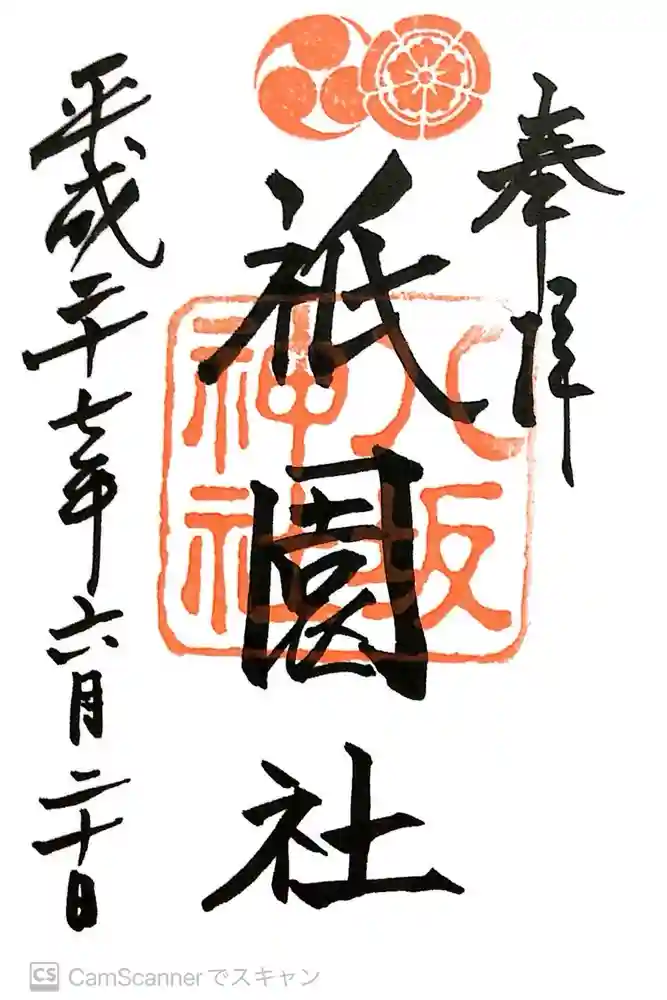 奉拝
祇園社
八坂
神社
平成二十七年六月二十日
CS CamScannerでスキャン